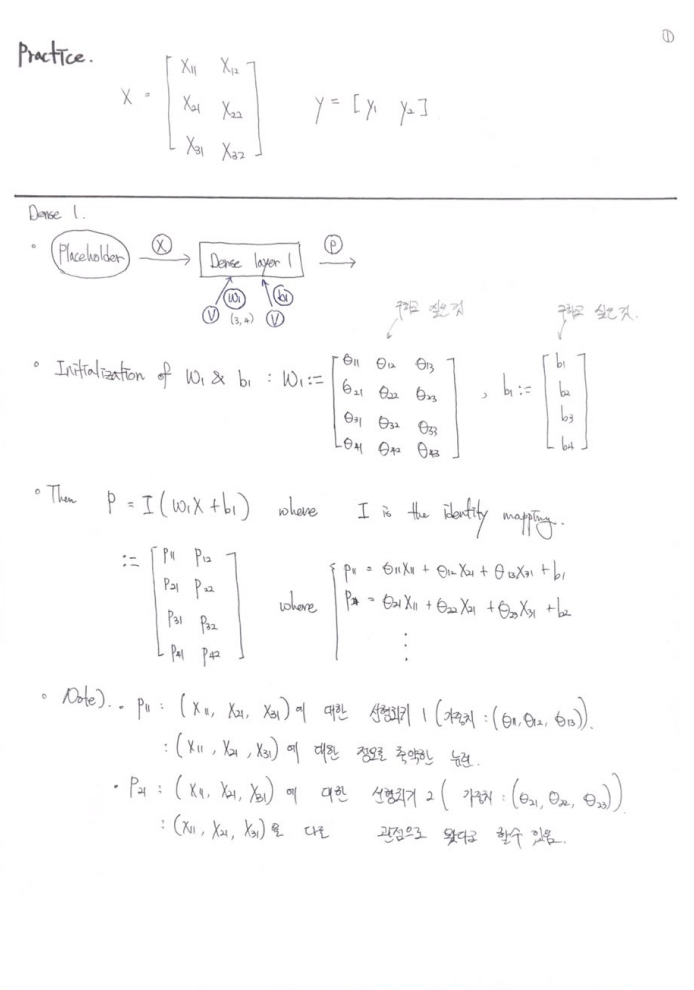 ①
Practice.
X = [ X11 X12
X21 X22
X31 X32 ]
y = [ y1 y2 ]
Dense 1.
Placeholder X Dense layer 1 P
W1 b1
V (3,4) V
구하고 싶은 것 구하고 싶은 것.
Initialization of W1 & b1 : W1 := [ θ11 θ12 θ13
θ21 θ22 θ23
θ31 θ32 θ33
θ41 θ42 θ43 ] , b1 := [ b1
b2
b3
b4 ]
Then P = I(W1X + b1) where I is the identity mapping.
:= [ P11 P12
P21 P22
P31 P32
P41 P42 ]
where { P11 = θ11X11 + θ12X21 + θ13X31 + b1
P21 = θ21X11 + θ22X21 + θ23X31 + b2
⋮
Note). • P11 : (X11, X21, X31)에 대한 선형회귀 1 (가중치 : (θ11, θ12, θ13)).
: (X11, X21, X31)에 대한 정보를 축약한 뉴런.
• P21 : (X11, X21, X31)에 대한 선형회귀 2 (가중치 : (θ21, θ22, θ23))
: (X11, X21, X31)을 다른 관점으로 봤다고 할수 있음.